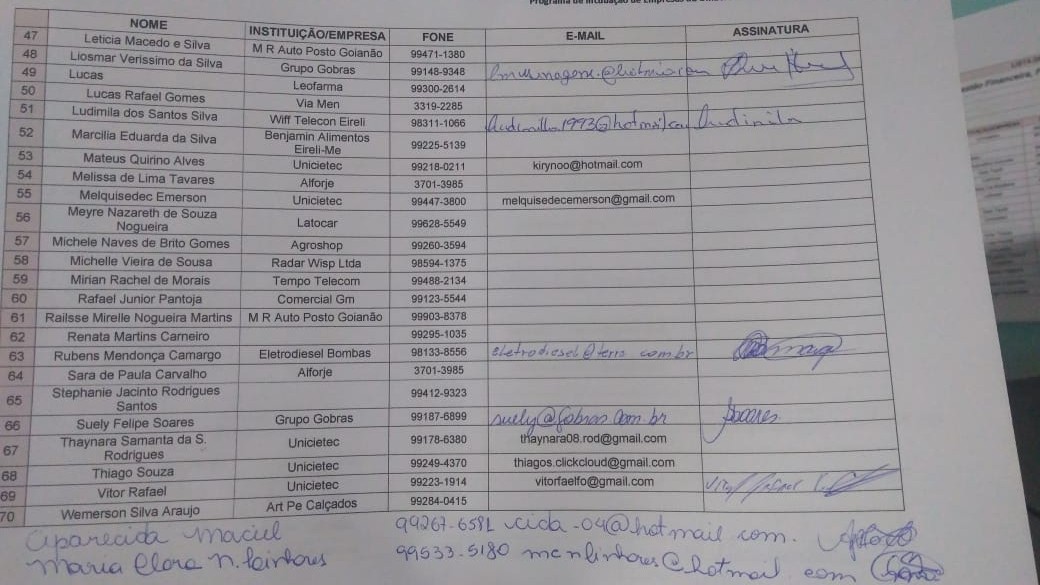 Programa de Incubação de Empresas
NOME INSTITUIÇÃO/EMPRESA FONE E-MAIL ASSINATURA
47 Leticia Macedo e Silva M R Auto Posto Goianão 99471-1380
48 Liosmar Verissimo da Silva Grupo Gobras 99148-9348
49 Lucas Leofarma 99300-2614
50 Lucas Rafael Gomes Via Men 3319-2285
51 Ludimila dos Santos Silva Wiff Telecon Eireli 98311-1066 Ludimilla1993@hotmail.com Ludimila
52 Marcilia Eduarda da Silva Benjamin Alimentos Eireli-Me 99225-5139
53 Mateus Quirino Alves Unicietec 99218-0211 kirynoo@hotmail.com
54 Melissa de Lima Tavares Alforje 3701-3985
55 Melquisedec Emerson Unicietec 99447-3800 melquisedecemerson@gmail.com
56 Meyre Nazareth de Souza Nogueira Latocar 99628-5549
57 Michele Naves de Brito Gomes Agroshop 99260-3594
58 Michelle Vieira de Sousa Radar Wisp Ltda 98594-1375
59 Mirian Rachel de Morais Tempo Telecom 99488-2134
60 Rafael Junior Pantoja Comercial Gm 99123-5544
61 Railsse Mirelle Nogueira Martins M R Auto Posto Goianão 99903-8378
62 Renata Martins Carneiro 99295-1035
63 Rubens Mendonça Camargo Eletrodiesel Bombas 98133-8556 eletrodiesel@terra.com.br
64 Sara de Paula Carvalho Alforje 3701-3985
65 Stephanie Jacinto Rodrigues Santos 99412-9323
66 Suely Felipe Soares Grupo Gobras 99187-6899 suely@gobras.com.br Soares
67 Thaynara Samanta da S. Rodrigues Unicietec 99178-6380 thaynara08.rod@gmail.com
68 Thiago Souza Unicietec 99249-4370 thiagos.clickcloud@gmail.com
69 Vitor Rafael Unicietec 99223-1914 vitorfaelfo@gmail.com Vitor Rafael
70 Wemerson Silva Araujo Art Pe Calçados 99284-0415
Aparecida Maciel 99267-6581 cida-04@hotmail.com.
Maria Clara N. Linhares 99533-5180 mcnlinhares@hotmail.com